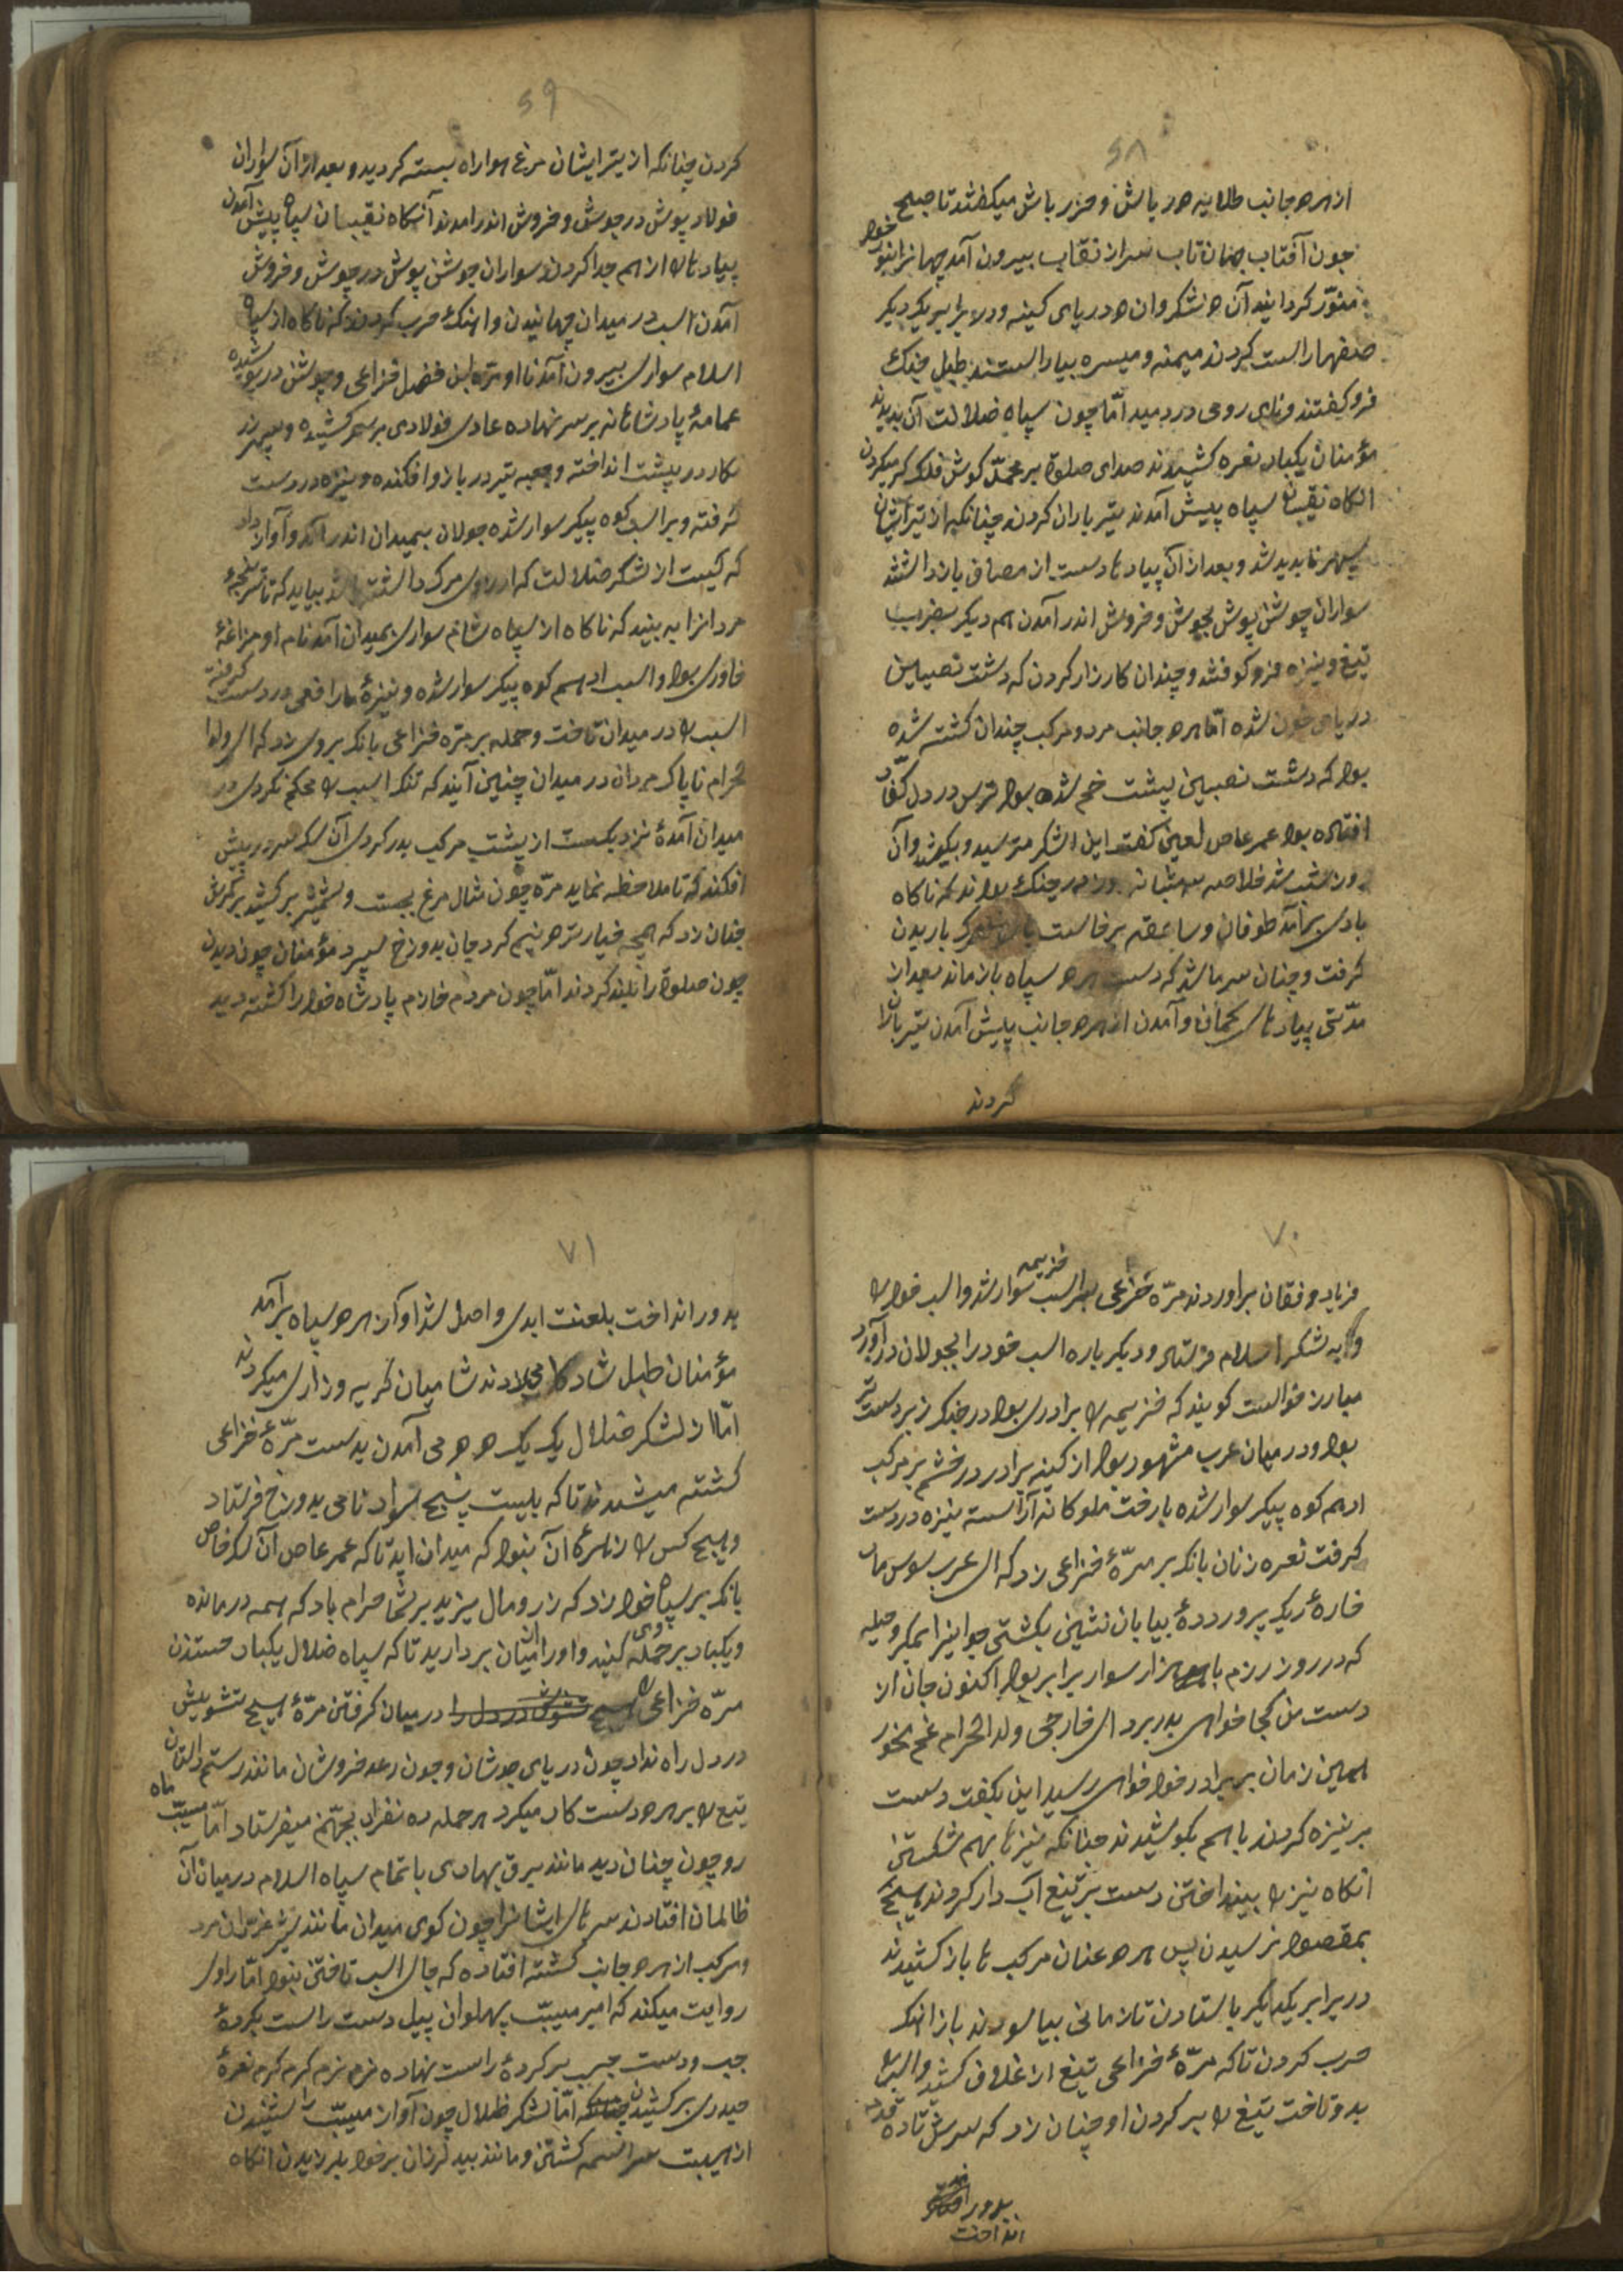 ۶۸
از هر دو جانب طلایه هدر باش و حزر باش میکفتند تا صبح
چون آفتاب جهان تاب سر از نقاب بیرون آمد جهانرا بنور خود
منوّر کردانید آن دو لشکر وان دو دریای کینه ور در برابر یکدیکر
صفها راست کردند میمنه و میسره بیاراستند طبل جنك
فرو کوفتند و نای رومی در دمید امّا چون سپاه ضلالت آن بدیدند
مؤمنان یکبار نعره کشیدند صدای صلوة بر محمّد کوش فلک کر میکردن
انکاه نقیبان سپاه پیش آمدند تیر باران کردند چنانکه از تیر ایشان
سپهر نابدید شد و بعد از آن پیادها دست از مصاف باز داشتند
سواران جوشن پوش بجوش و خروش اندر آمدن هم دیکر بضرب
تیغ و نیزه فرو کوفتند و چندان کارزار کردن که دشت نصیبین
دریای خون شده امّا هر دو جانب مرد و مرکب چندان کشته شده
بود که دشت نصیبین پشت خم شده بود ترس در دل کفّار
افتاده بود عمر عاص لعین کفت این لشکر مترسید و بکوشید و آن
روز شب شد خلاصه سه شبانه روز در جنك بودند که ناکاه
بادی برآمد طوفان و ساعقه برخاست باریدن
کرفت و چنان سرما شد که دست هر دو سپاه باز ماند بعد از
مدّتی پیادهای کمان و آمدن از هر دو جانب پیش آمدن تیر باران
کردند
۶۹
کردن چنانکه از تیر ایشان مرغ هوا راه بسته کردید و بعد از آن سواران
فولاد پوش در جوش و خروش اندر امدند آنکاه نقیبان سپاه پیش آمدن
پیادهارا از هم جدا کردن سواران جوشن پوش در جوش و خروش
آمدن اسب در میدان جهانیدن و اهنك حرب کردند که ناکاه از سپاه
اسلام سواری بیرون آمد نام او مرّه ابن فضل خزاعی و جوشن در پوشیده
عمامهٔ پادشاهانه بر سر نهاده عادی فولادی بر سر کشیده و سپر
در پشت انداخته و جعبه تیر در بازو افکنده و نیزه در دست
کرفته و بر اسب کوه پیکر سوار شده جولان بمیدان اندر آمد و آواز داد
که کیست از لشکر ضلالت که ارزوی مرک داشته باشد بیاید که تا سر پنجهٔ
مردانرا به بیند که ناکاه از سپاه شام سواری بمیدان آمد نام او مزاغهٔ
خاوری بود و اسب ادهم کوه پیکر سوار شده و نیزهٔ مار افعی در دست کرفته
اسب را در میدان تاخت و حمله بر مرّه خزاعی بانک بروی زد که ای ولد
الحرام ناپاک مردان در میدان چنین آیند که تنک اسب را محکم نکردی در
میدان آمدهٔ نزدیکست از پشت مرکب بدر کردی آن سک سر در پیش
افکند که تا ملاحظه نماید مرّه چون مثال مرغ بجست و شمشیر برکشید بر کمرش
چنان زد که همچه خیار تر دو نیم کرد جان بدوزخ سپرد مؤمنان چون دیدن
چون صلوة را بلند کردند امّا چون مردم خازم پادشاه خود را کشته دید
۷۰
فریاد و فقان براوردند مرّه خزعی بر اسب خزیمه سوار شد و اسب خود را
وا به لشکر اسلام فرستاد و دیکر باره اسب خود را بجولان در آورد
مبارز خواست کویند که خزیمه را برادری بود در جنک زبر دست تر
بود و در میان عرب مشهور بود از کینه برادر در خشم بر مرکب
ادهم کوه پیکر سوار شده بارخت ملوکانه آراسته نیزه در دست
کرفت نعره زنان بانک بر مرّهٔ خزاعی زد که ای عرب سوس مار
خارهٔ ریک پروردهٔ بیابان نشین بکشتی جوانیرا بمکر و حیله
که در روز رزم با هزار سوار برابر بود اکنون جان از
دست من کجا خواهی بدر برد ای خارجی ولد الحرام غم مخور
همین زمان به برادر خود خواهی رسید این بکفت دست
بر نیزه کردند باهم بکوشیدند چنانکه نیزها بهم شکستن
انکاه نیزه بینداختن دست بر تیغ آب دار کردند هیچ
بمقصود نرسیدن پس هر دو عنان مرکب ها باز کشیدند
در برابر یکدیکر باستادن تا زمانی بیاسودند باز اهنک
حرب کردن تا که مرّهٔ خزاعی تیغ از غلاف کشید و اسب را
بدو تاخت تیغ را بر کردن او چنان زد که سرش تا ده قدم
بدور
انداخت
۷۱
بدور انداخت بلعنت ابدی واصل شد آواز از هر دو سپاه برآمد
مؤمنان طبل شاد کامی زدند شامیان کریه و زاری میکردند
امّا از لشکر ضلال یک یک دو دو می آمدن بدست مرّهٔ خزاعی
کشته میشدند تا که بیست پنج سوار نامی بدوزخ فرستاد
و هیچ کس را زهرهٔ آن نبود که میدان اید تا که عمر عاص آن سک خاص
بانک بر سپاه خود زد که زر و مال یزید بر شما حرام باد که همه در مانده
و یکبار بر وی حمله کنید و اورا از میان بردارید تا که سپاه ضلال یکبار جستن
مرّه خزاعی را در میان کرفتن مرّهٔ هیچ تشویش
در دل راه نداد چون دریای جوشان و چون رعد خروشان مانند رستم دستان
تیغ را بر هر دو دست کار میکرد هر حمله ده نفر را بجهنّم میفرستاد امّا مسیّب ماه
رو چون چنان دید مانند برق بهادی با تمام سپاه اسلام در میان آن
ظالمان افتادند سرهای ایشانرا چون کوی میدان مانند شیر غرّان مرد
و مرکب از هر دو جانب کشته افتاده که جای اسب تاختن نبود امّا راوی
روایت میکند که امیر مسیّب پهلوان پیل دست راست بکردهٔ
چپ و دست چپ بر کردهٔ راست نهاده نرم نرم کرم کرم نعرهٔ
حیدری برکشیدن امّا لشکر ظلال چون آواز مسیّب را شنیدن
از هیبت سراسمه کشتن و مانند بید لرزان بر خود بلرزیدن انکاه